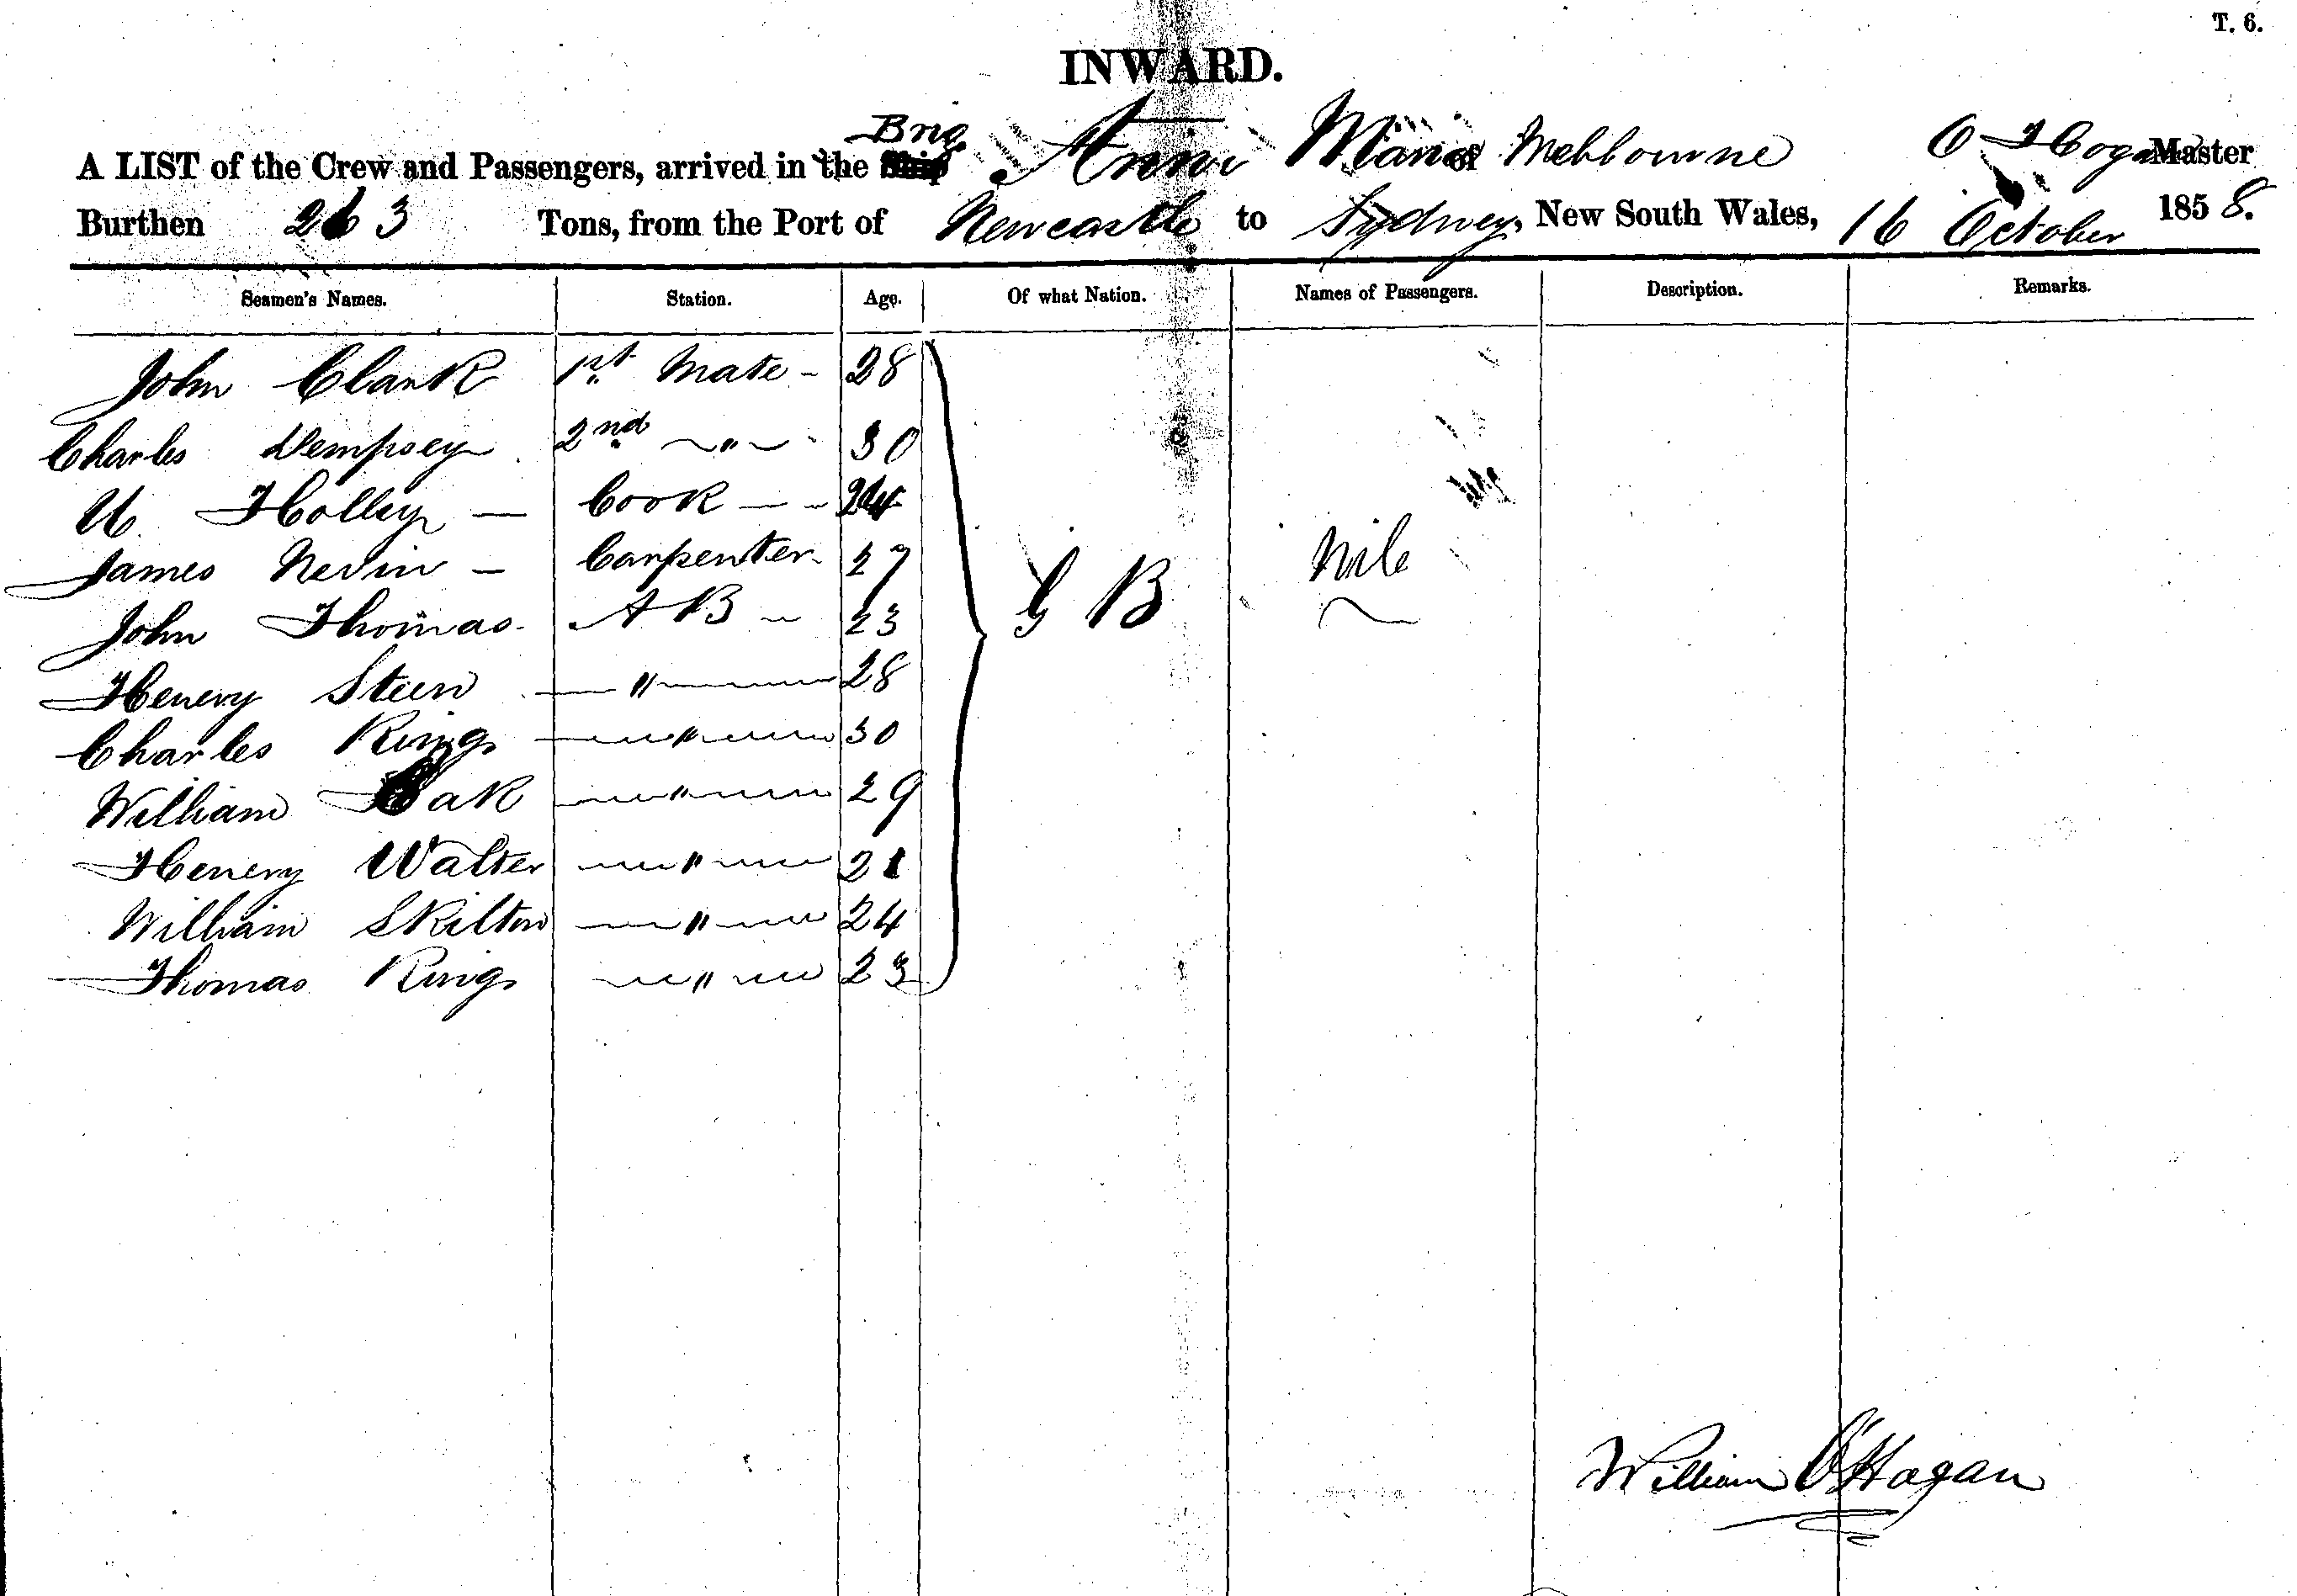 T. 6.
INWARD.
A LIST of the Crew and Passengers, arrived in the Brig Anne Maria of Melbourne O Hogan Master
Burthen 263 Tons, from the Port of Newcastle to Sydney, New South Wales, 16 October 1858.
Seamen's Names. Station. Age. Of what Nation. Names of Passengers. Description. Remarks.
John Clark 1st Mate - 28
Charles Dempsey 2nd " 30
Holley - Cook - - 24
James Nevin - Carpenter 27
John Thomas A B 23
G B
Nile
Henery Steen " 28
Charles King " 30
William " 29
Henery Walter " 21
William Skilton " 24
Thomas King " 23
William O'Hagan